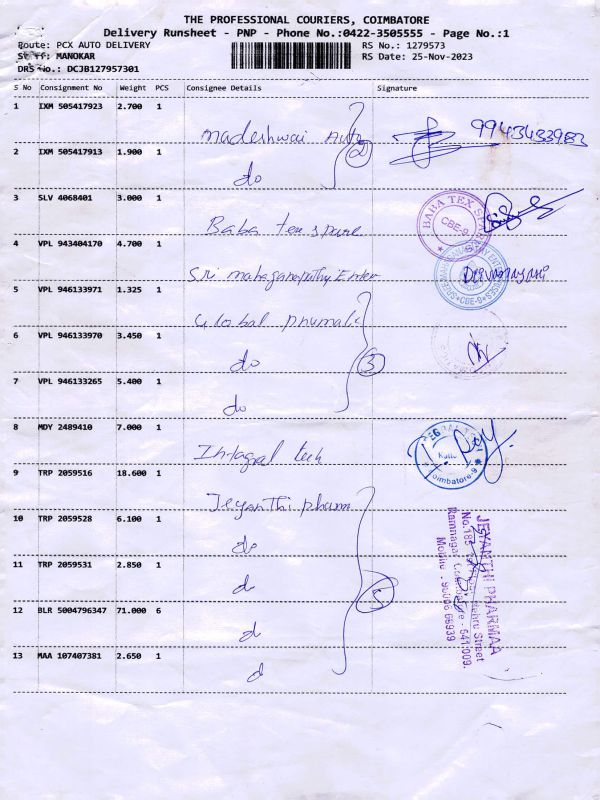 THE PROFESSIONAL COURIERS, COIMBATORE
Delivery Runsheet - PNP - Phone No.:0422-3505555 - Page No.:1
Route: PCX AUTO DELIVERY
RS No.: 1279573
Staff: MANOKAR
RS Date: 25-Nov-2023
DRS No.: DCJB127957301
S No Consignment No Weight PCS Consignee Details Signature
1 IXM 505417923 2.700 1
Madeshwai Auto 2 9943433983
2 IXM 505417913 1.900 1
do
3 SLV 4068401 3.000 1
Baba tex spare BABA TEX CBE-9
4 VPL 943404170 4.700 1
Sri mahaganapathy Enter CBE-9
5 VPL 946133971 1.325 1
Global pnumatic
6 VPL 946133970 3.450 1
do 3
7 VPL 946133265 5.400 1
do
8 MDY 2489410 7.000 1
Integral tech Coimbatore-9
9 TRP 2059516 18.600 1
Jeyanthi pharm
10 TRP 2059528 6.100 1
do
11 TRP 2059531 2.850 1
d 5
12 BLR 5004796347 71.000 6
d
13 MAA 107407381 2.650 1
d
JEYANTHI PHARMAA
No.185 Nehru Street
Ramnagar Coimbatore - 641 009.
Mobile 66939